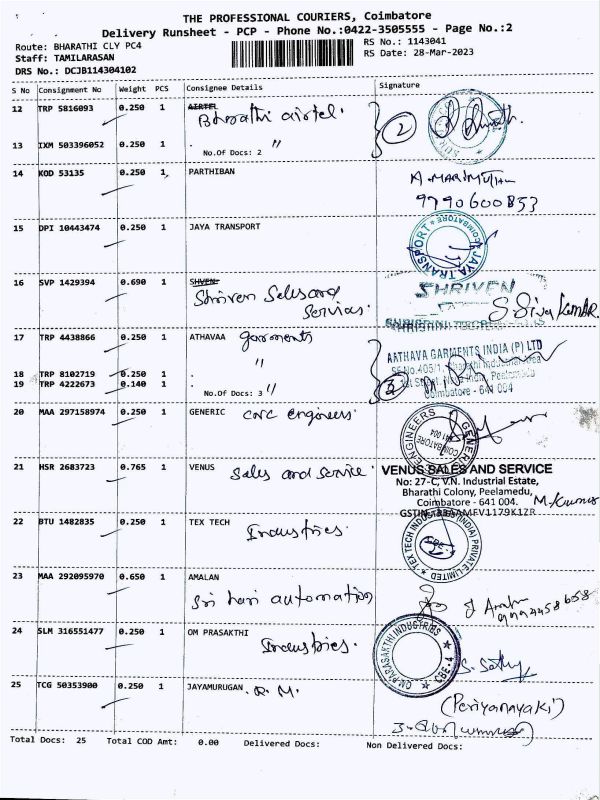 THE PROFESSIONAL COURIERS, Coimbatore
Delivery Runsheet - PCP - Phone No.:0422-3505555 - Page No.:2
Route: BHARATHI CLY PC4
RS No.: 1143041
Staff: TAMILARASAN
RS Date: 28-Mar-2023
DRS No.: DCJB114304102
S No Consignment No Weight PCS Consignee Details Signature
12 TRP 5816093 0.250 1 AIRTEL Bharathi airtel.
2
13 IXM 503396052 0.250 1 . "
No.Of Docs: 2
14 KOD 53135 0.250 1 PARTHIBAN
A. MARIMUTHU
9790600853
15 DPI 10443474 0.250 1 JAYA TRANSPORT
JAYA TRANSPORT COIMBATORE
16 SVP 1429394 0.690 1 SHVEN
Shriven Sales and
Services.
SHRIVEN
S Siva KUMAR.
17 TRP 4438866 0.250 1 ATHAVAA garments
"
18 TRP 8102719 0.250 1
19 TRP 4222673 0.140 1 . "
No.Of Docs: 3
3
AATHAVA GARMENTS INDIA (P) LTD
SF.No.405/1, Bharathi Industrial Area
Peelamedu
Coimbatore - 641 004
20 MAA 297158974 0.250 1 GENERIC cnc engineers.
GENERIC ENGINEERS COIMBATORE 641 004
21 HSR 2683723 0.765 1 VENUS Sales and service.
VENUS SALES AND SERVICE
No: 27-C, V.N. Industrial Estate,
Bharathi Colony, Peelamedu,
Coimbatore - 641 004.
M. Kumar
22 BTU 1482835 0.250 1 TEX TECH
Industries.
TEX TECH INDUSTRIES (INDIA) PRIVATE LIMITED
23 MAA 292095970 0.650 1 AMALAN
Sri hari automation
24 SLM 316551477 0.250 1 OM PRASAKTHI
Industries.
OM PARASAKTHI INDUSTRIES
CBE-4
25 TCG 50353900 0.250 1 JAYAMURUGAN. R. M.
(Periyanayaki)
Total Docs: 25 Total COD Amt: 0.00 Delivered Docs: Non Delivered Docs: